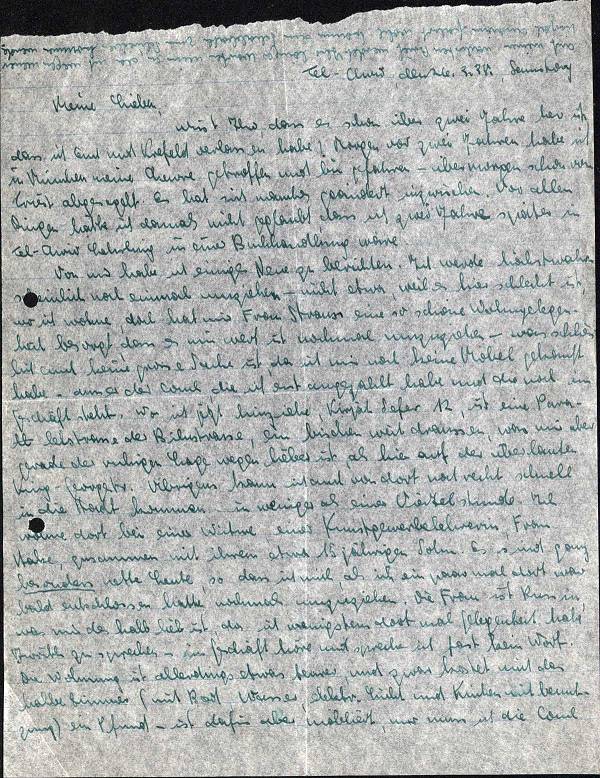 Tel-Aviv, den 26. 3. 38. Sonnabend
Meine Lieben,
wisst Ihr, dass es schon über zwei Jahre her ist
dass ich aus Krefeld verlassen habe? Morgen vor zwei Jahren habe ich
in München meine Chewre getroffen und bin gefahren - übermorgen schon von
Triest abgesegelt. Es hat sich manches geändert inzwischen. Vor allen
Dingen hätte ich damals nicht geglaubt dass ich zwei Jahre später in
Tel-Aviv Lehrling in einer Buchhandlung wäre.
Von mir habe ich einiges Neue zu berichten. Ich werde höchstwahr-
scheinlich noch einmal umziehen - nicht etwa weil es hier schlecht ist
wo ich wohne, doch hat mir Frau Strauss eine so schöne Wohngelegen-
heit besorgt dass es mir wert ist nochmal umzuziehen - was schliess-
lich auch keine grosse Sache ist da ich mir noch keine Möbel gekauft
habe - ausser der Couch die ich erst angezahlt habe und die noch im
Geschäft steht. Wo ich jetzt hinziehe, Kirjat Sefer 12, ist eine Paral-
lelstrasse der Bilustrasse, ein bischen weit draussen, was mir aber
gerade der ruhigen Lage wegen lieber ist als hier auf der überlauten
King-Georgstr. Übrigens kann ich auch von dort noch recht schnell
in die Stadt kommen - in weniger als einer Viertelstunde. Ich
wohne dort bei einer Witwe einer Kunstgewerbelehrerin, Frau
zusammen mit ihrem etwa 15 jährigen Sohn. Es sind ganz
besonders nette Leute, so dass ich mich als ich ein paar mal dort war
bald entschlossen hatte nochmals umzuziehen. Die Frau ist Russin,
was mir deshalb lieb ist, da ich wenigstens dort mal Gelegenheit habe
Iwrith zu sprechen - im Geschäft höre und spreche ich fast kein Wort.
Die Wohnung ist allerdings etwas teurer, und zwar kostet mich das
halbe Zimmer (mit Bad, Wasser, elektr. Licht und Küchenmitbenut-
zung) ein Pfund - ist dafür aber möbliert, nur muss ich die Couch